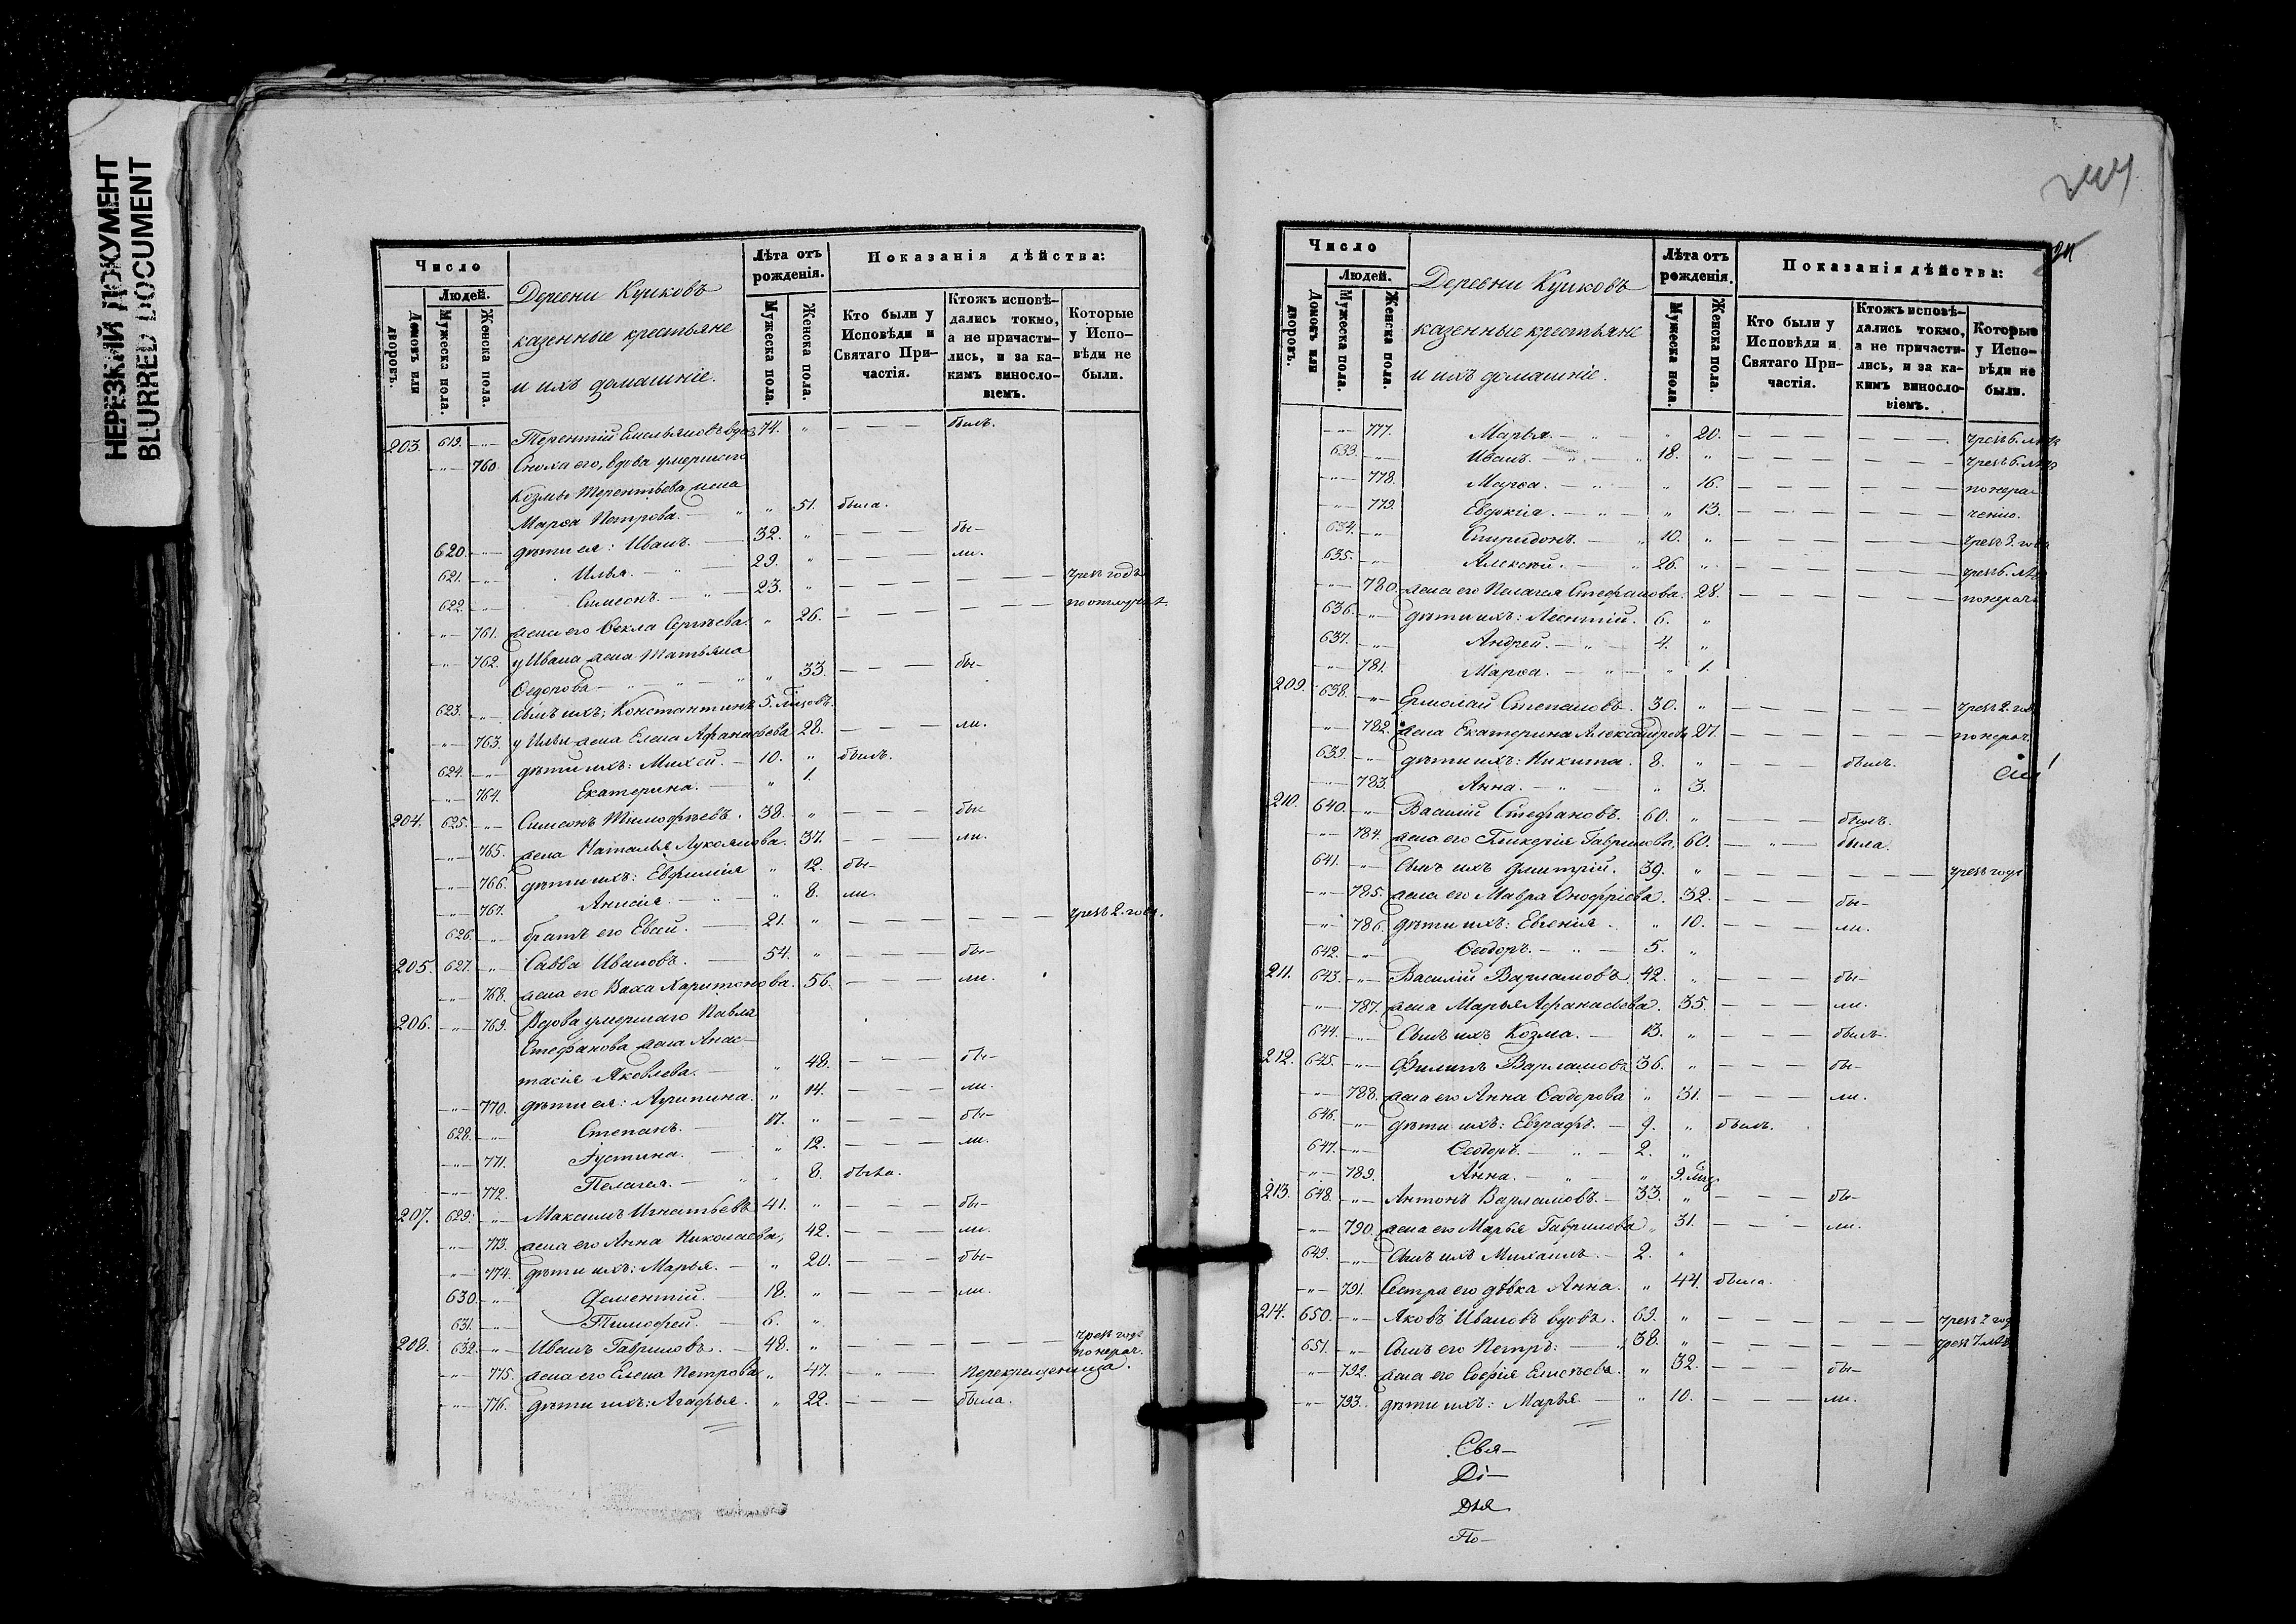 НЕРЕЗКИЙ ДОКУМЕНТ
BLURRED DOCUMENT
Число
Людей.
Домовъ или дворовъ.
Мужеска пола.
Женска пола.
Деревни Кушковъ
казенные крестьяне
и ихъ домашніе.
Лѣта отъ рожденія.
Мужеска пола.
Женска пола.
Показанія дѣйства:
Кто были у Исповѣди и Святаго Причастія.
Ктожъ исповѣдались токмо, а не причастились, и за какимъ винословіемъ.
Которые у Исповѣди не были.
203. 619. -"- Терентій Емельяновъ вдов. 74. " — — — былъ.
-"- 760. Сноха его, вдова умершаго
Козмы Терентьева жена
Марѳа Петрова. — " " 51. была.
620. -"- дѣти ея: Иванъ. — 32. " — — — бы-
621. -"- Илья. — " — 29. " — — — ли.
622. -"- Симеонъ. — " — 23. " — — — — — — чрезъ годъ
-"- 761. жена его Ѳекла Сергѣева. " 26. — — — — — —
-"- 762. у Ивана жена Татьяна
Ѳедорова — " — " — " " 33. — — — бы-
623. -"- сынъ ихъ, Константинъ 5. мѣсяцовъ.
-"- 763. у Ильи жена Елена Афанасьева 28. — — — ли.
624. -"- дѣти ихъ: Михей. — 10. " былъ.
-"- 764. Екатерина. — " 1.
204. 625. -"- Симеонъ Тимофѣевъ. 38. " — — — бы-
-"- 765. жена Наталья Лукоянова. 37. — — — ли.
-"- 766. дѣти ихъ: Евфимія " 12. бы-
-"- 767. Анисія. — " — " 8. ли.
626. -"- братъ его Евсей. — 21. " — — — — — — чрезъ 2. года.
205. 627. -"- Савва Ивановъ. — 54. " — — — бы-
-"- 768. жена его Васса Харитонова. 56. — — — ли.
206. -"- 769. Вдова умершаго Павла
Стефанова жена Анас-
тасія Яковлева. — " 48. — — — бы-
-"- 770. дѣти ея: Агрипина. " 14. — — — ли.
628. -"- Степанъ. — 17. " — — — бы-
-"- 771. Іустина. — " 12. — — — ли.
-"- 772. Пелагея. — " " 8. была.
207. 629. -"- Максимъ Игнатьевъ 41. " — — — бы-
-"- 773. жена его Анна Николаева, 42. — — — ли.
-"- 774. дѣти ихъ: Марья. — " 20. — — — бы-
630. -"- Дементій. — 18. " — — — ли.
631. -"- Тимофей. — 6. "
208. 632. -"- Иванъ Гавриловъ. — 48. " — — — — — — чрезъ годъ
по нерач.
-"- 775. жена его Елена Петрова " 47. — " — Перекрещеница.
-"- 776. дѣти ихъ: Агафья. " 22. — — — была.
Число
Людей.
Домовъ или дворовъ.
Мужеска пола.
Женска пола.
Деревни Кушковъ
казенные крестьяне
и ихъ домашніе.
Лѣта отъ рожденія.
Мужеска пола.
Женска пола.
Показанія дѣйства:
Кто были у Исповѣди и Святаго Причастія.
Ктожъ исповѣдались токмо, а не причастились, и за какимъ винословіемъ.
Которые у Исповѣди не были.
-"- 777. Марья. — " — " 20. — — — — — — чрезъ 6. лѣтъ
633. -"- Иванъ. — " — " 18. " — — — — — — чрезъ 6. лѣтъ
-"- 778. Марѳа. — " — " 16. — — — — — — по нера-
-"- 779. Евдокія. — " — " 13. — — — — — — ченію.
634. -"- Спиридонъ. — " 10. " — — — — — — чрезъ 3. года
635. -"- Алексѣй. — " 26. " — — — — — — чрезъ 6. лѣтъ
-"- 780. жена его Пелагея Стефанова. 28. — — — — — — по нерач.
636. -"- дѣти ихъ: Леонтій. 6. "
637. -"- Андрей. — " — 4. "
-"- 781. Марѳа. — " — " 1.
209. 638. -"- Ермолай Степановъ. 30. " — — — — — — чрезъ 2. год
-"- 782. жена Екатерина Александрова 27. — — — — — — по нерач.
639. -"- дѣти ихъ: Никита. 8. " — — — былъ.
-"- 783. Анна. — " — " 3.
210. 640. -"- Василій Стефановъ. 60. " — — — былъ.
-"- 784. жена его Гликерія Гаврилова. 60. — " — была.
641. -"- Сынъ ихъ Дмитрій. 39. " — — — — — — чрезъ годъ
-"- 785. жена его Мавра Онофріева. 32. — — — бы-
-"- 786. дѣти ихъ: Евгенія. " 10. — — — ли.
642. -"- Ѳеодоръ. — " — 5. "
211. 643. -"- Василій Варламовъ 42. " — — — бы-
-"- 787. жена Марья Афанасьева. 35. — — — ли.
644. -"- Сынъ ихъ Козма. — 13. " — — — былъ.
212. 645. -"- Филипъ Варламовъ 36. " — — — бы-
-"- 788. жена его Анна Ѳедорова " 31. — — — ли.
646. -"- дѣти ихъ: Евграфъ. — 9. " былъ.
647. -"- Ѳеодоръ. — " — 2. "
-"- 789. Анна. — " — " 9. мѣс.
213. 648. -"- Антонъ Варламовъ. — 33. " — — — бы-
-"- 790. жена его Марья Гаврилова " 31. — — — ли.
649. -"- Сынъ ихъ Михаилъ. — 2. "
-"- 791. Сестра его дѣвка Анна. " 44. была.
214. 650. -"- Яковъ Ивановъ вдовъ. 69. " — — — — — — чрезъ 2 год
651. -"- Сынъ его Петръ: — " 38. " — — — — — — чрезъ 7. лѣтъ
-"- 792. жена его Софія Елисѣева. " 32. — — — бы-
-"- 793. дѣти ихъ: Марья. — " 10. — — — ли.
Свя—
Ді—
Дья
По—